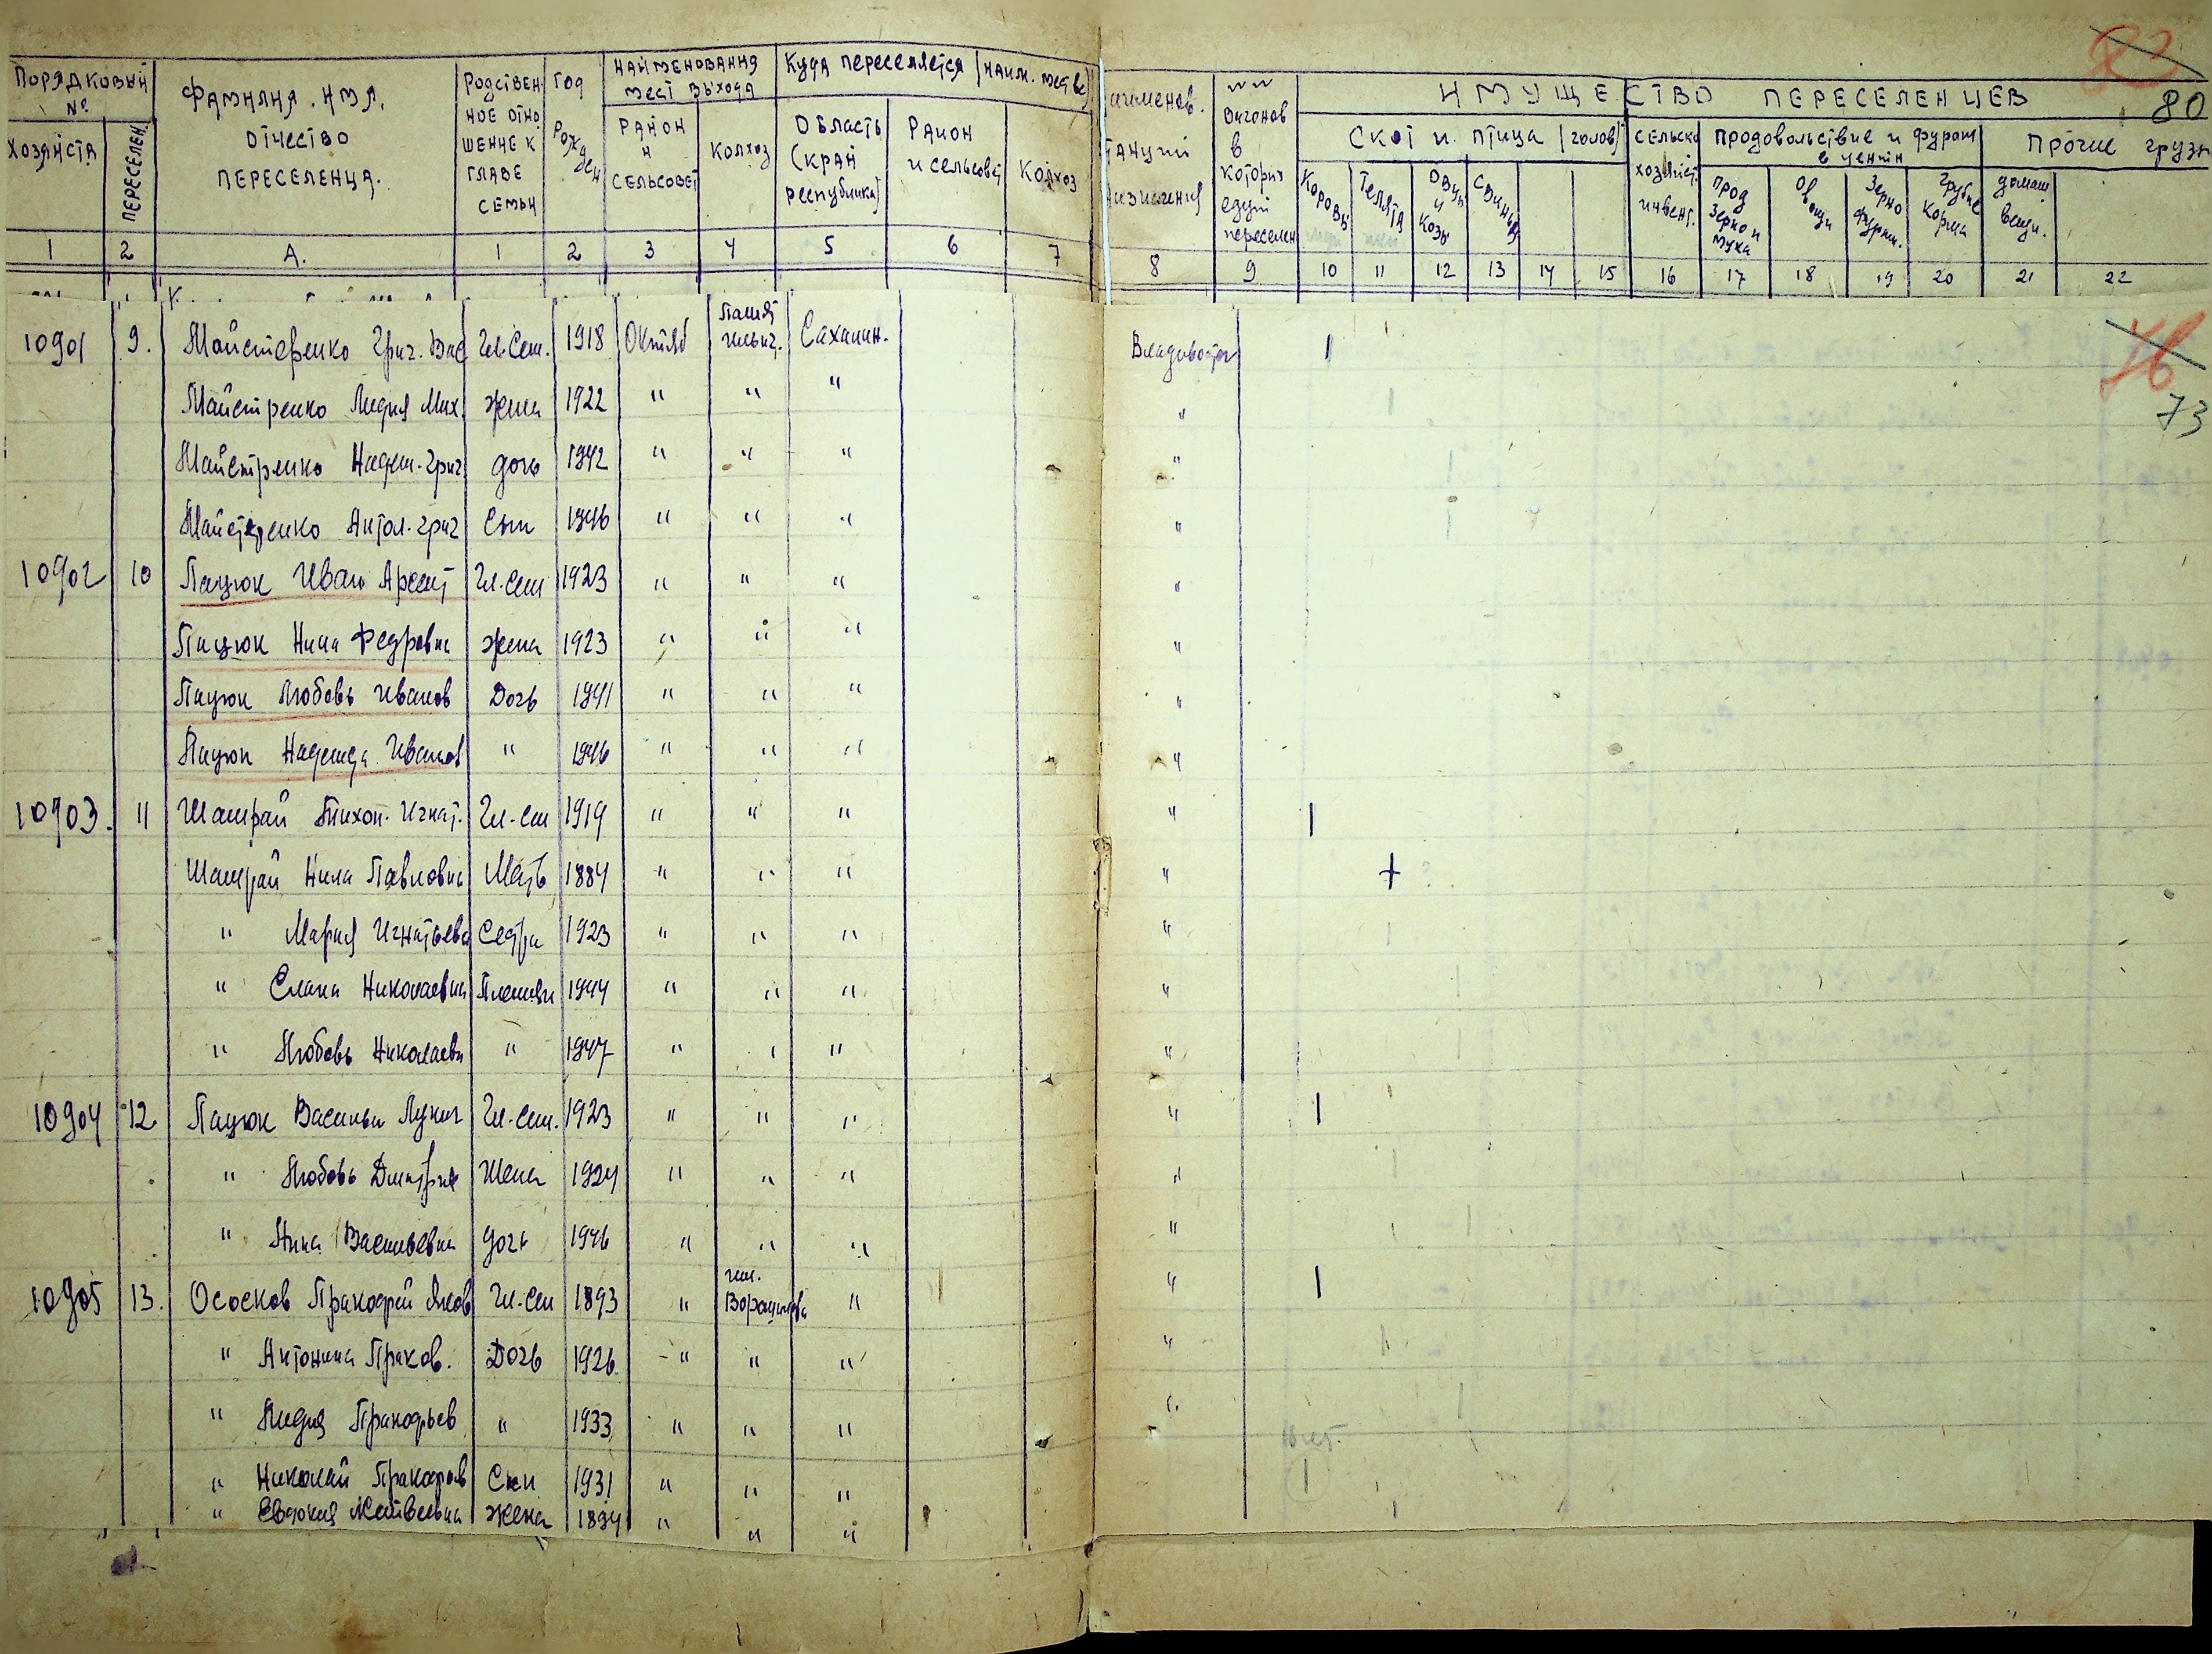 83
80
Порядковый №
Фамилия, имя, отчество переселенца.
Родствен-ное отно-шение к главе семьи
Год рожден
Наименования мест выхода
Куда переселяется (наим. мест в)
хозяйств
переселен.
район и сельсовет
колхоз
Область (край республика)
Район и сельсовет
Колхоз
вагонов в которых едут переселен
ИМУЩЕСТВО ПЕРЕСЕЛЕНЦЕВ
Скот и птица (голов)
сельско хозяйст. инвент.
продовольствие и фураж в центн
Прочие грузы
Коровы
Телята
Овцы и козы
Свиньи
прод зерно и мука
Овощи
Зерно фураж.
Грубые корма
домаш вещи.
1 2 А. 1 2 3 4 5 6 7 8 9 10 11 12 13 14 15 16 17 18 19 20 21 22
76
73
10901 9. Майстеренко Григ. Вас Гл. Сем. 1918 Октяб Памят ильич. Сахалин. Владивосток 1
Майстренко Лидия Мих. жена 1922 " " " "
Майстренко Надеж. Григ дочь 1942 " " " "
Майстренко Антол. Григ Сын 1946 " " " "
10902 10 Пацюк Иван Арсент Гл. сем 1923 " " " "
Пацюк Нина Федровна жена 1923 " " " "
Пацюк Любовь Иванов Дочь 1941 " " " "
Пацюк Надежда Иванов " 1946 " " " "
10903. 11 Шамрай Тихон. Игнат. Гл. сем 1919 " " " " 1
Шамрай Нина Павловна Мать 1884 " " " " +
" Мария Игнатьева Сестра 1923 " " " "
" Елена Николаевна Племян 1944 " " " "
" Любовь Николаевн " 1947 " " " "
10904 12. Пацюк Василий Лукич Гл. сем. 1923 " " " " 1
" Любовь Дмитрие Жена 1924 " " " "
" Нина Васильевна дочь 1946 " " " "
10905 13. Ососков Пракофий Яков Гл. сем 1893 " им. Ворошилова " " 1
" Антонина Праков. Дочь 1926 " " " "
" Лидия Пракофьев " 1933 " " " "
" Николай Пракофов Сын 1931 " " " 1
" Евдокия Матвеевна жена 1894 " " "